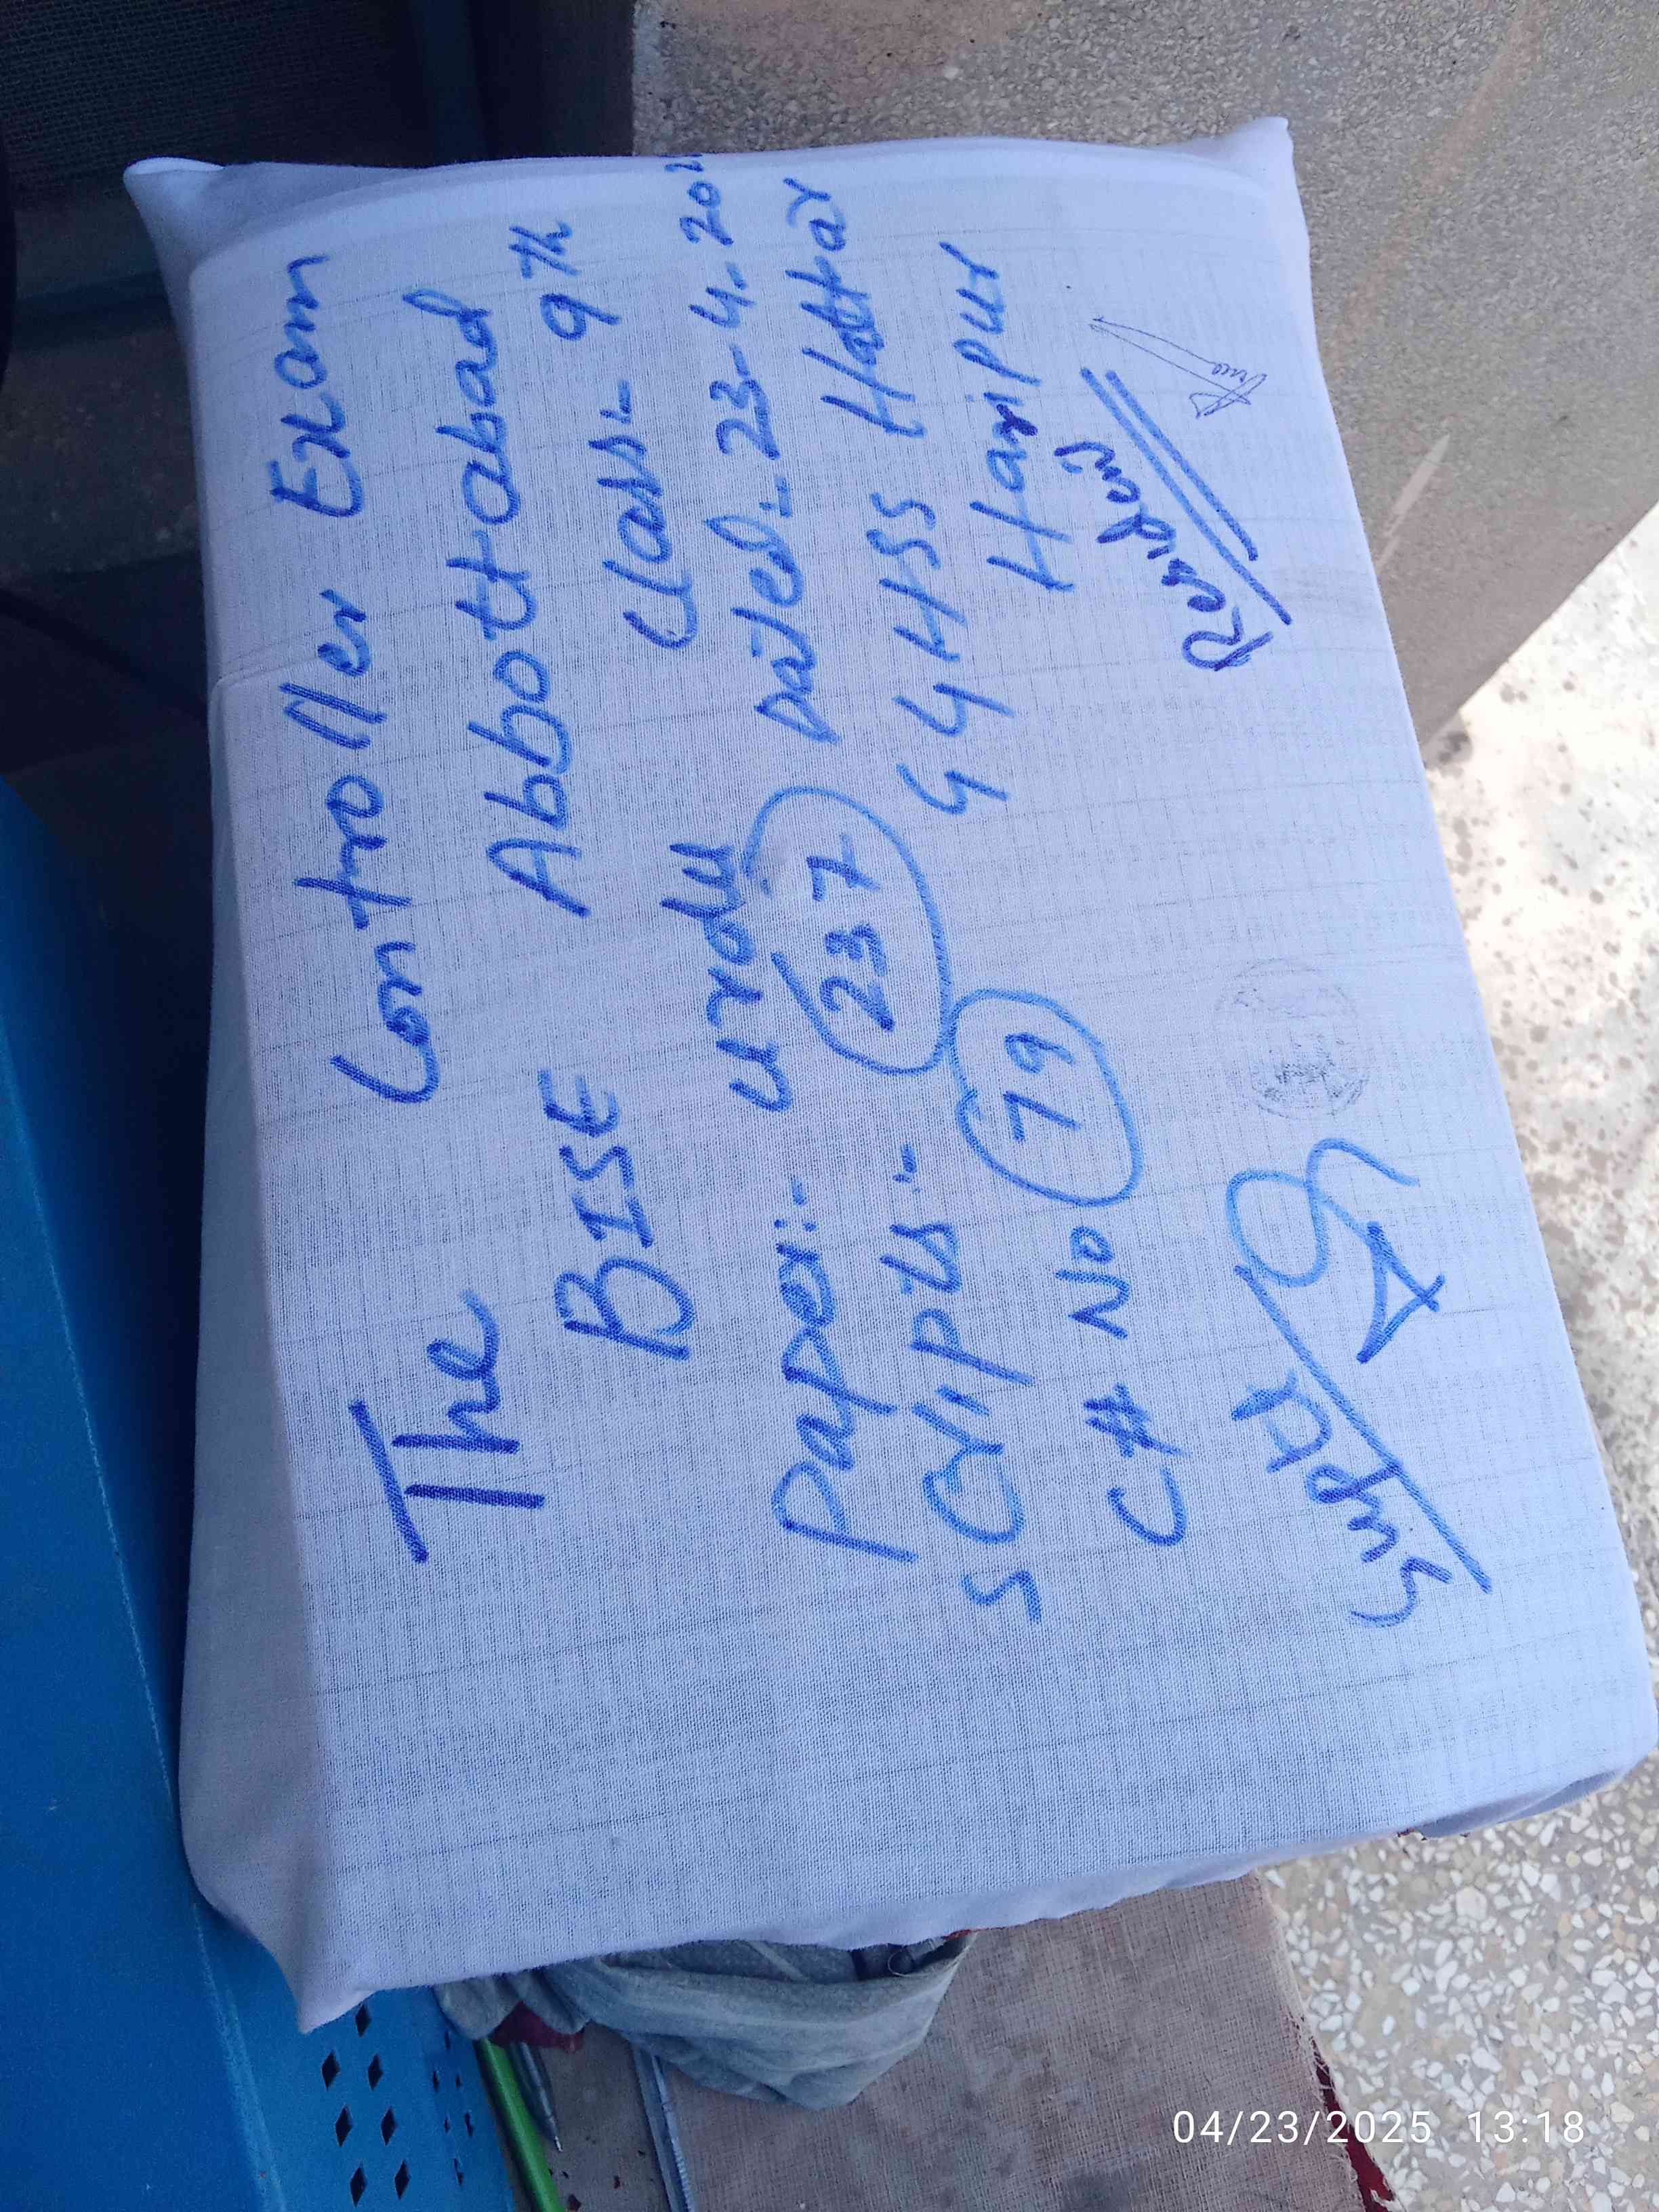 The Controller Exam
BISE Abbottabad
Paper:- Urdu Class:- 9th
Scripts:- 237 Dated:- 23-4-202
C# No 79 GGHSS Hattar
Haripur
Supdt
04/23/2025 13:18